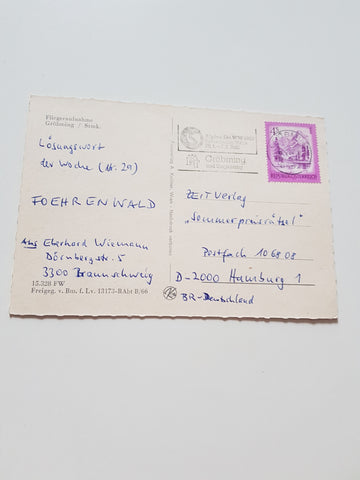 Fliegeraufnahme
Gröbming / Stmk.
Lösungswort
der Woche (Nr. 29)
FOEHRENWALD
Aus Eberhard Wiemann
Dörnbergstr. 5
3300 Braunschweig
15.328 FW
Freigeg. v. Bm. f. Lv. 13173-RAbt B/66
Gröbming
4
REPUBLIK ÖSTERREICH
ZEIT Verlag
"Sommerpreisrätsel"
Postfach 10 68 08
D-2000 Hamburg 1
BR-Deutschland